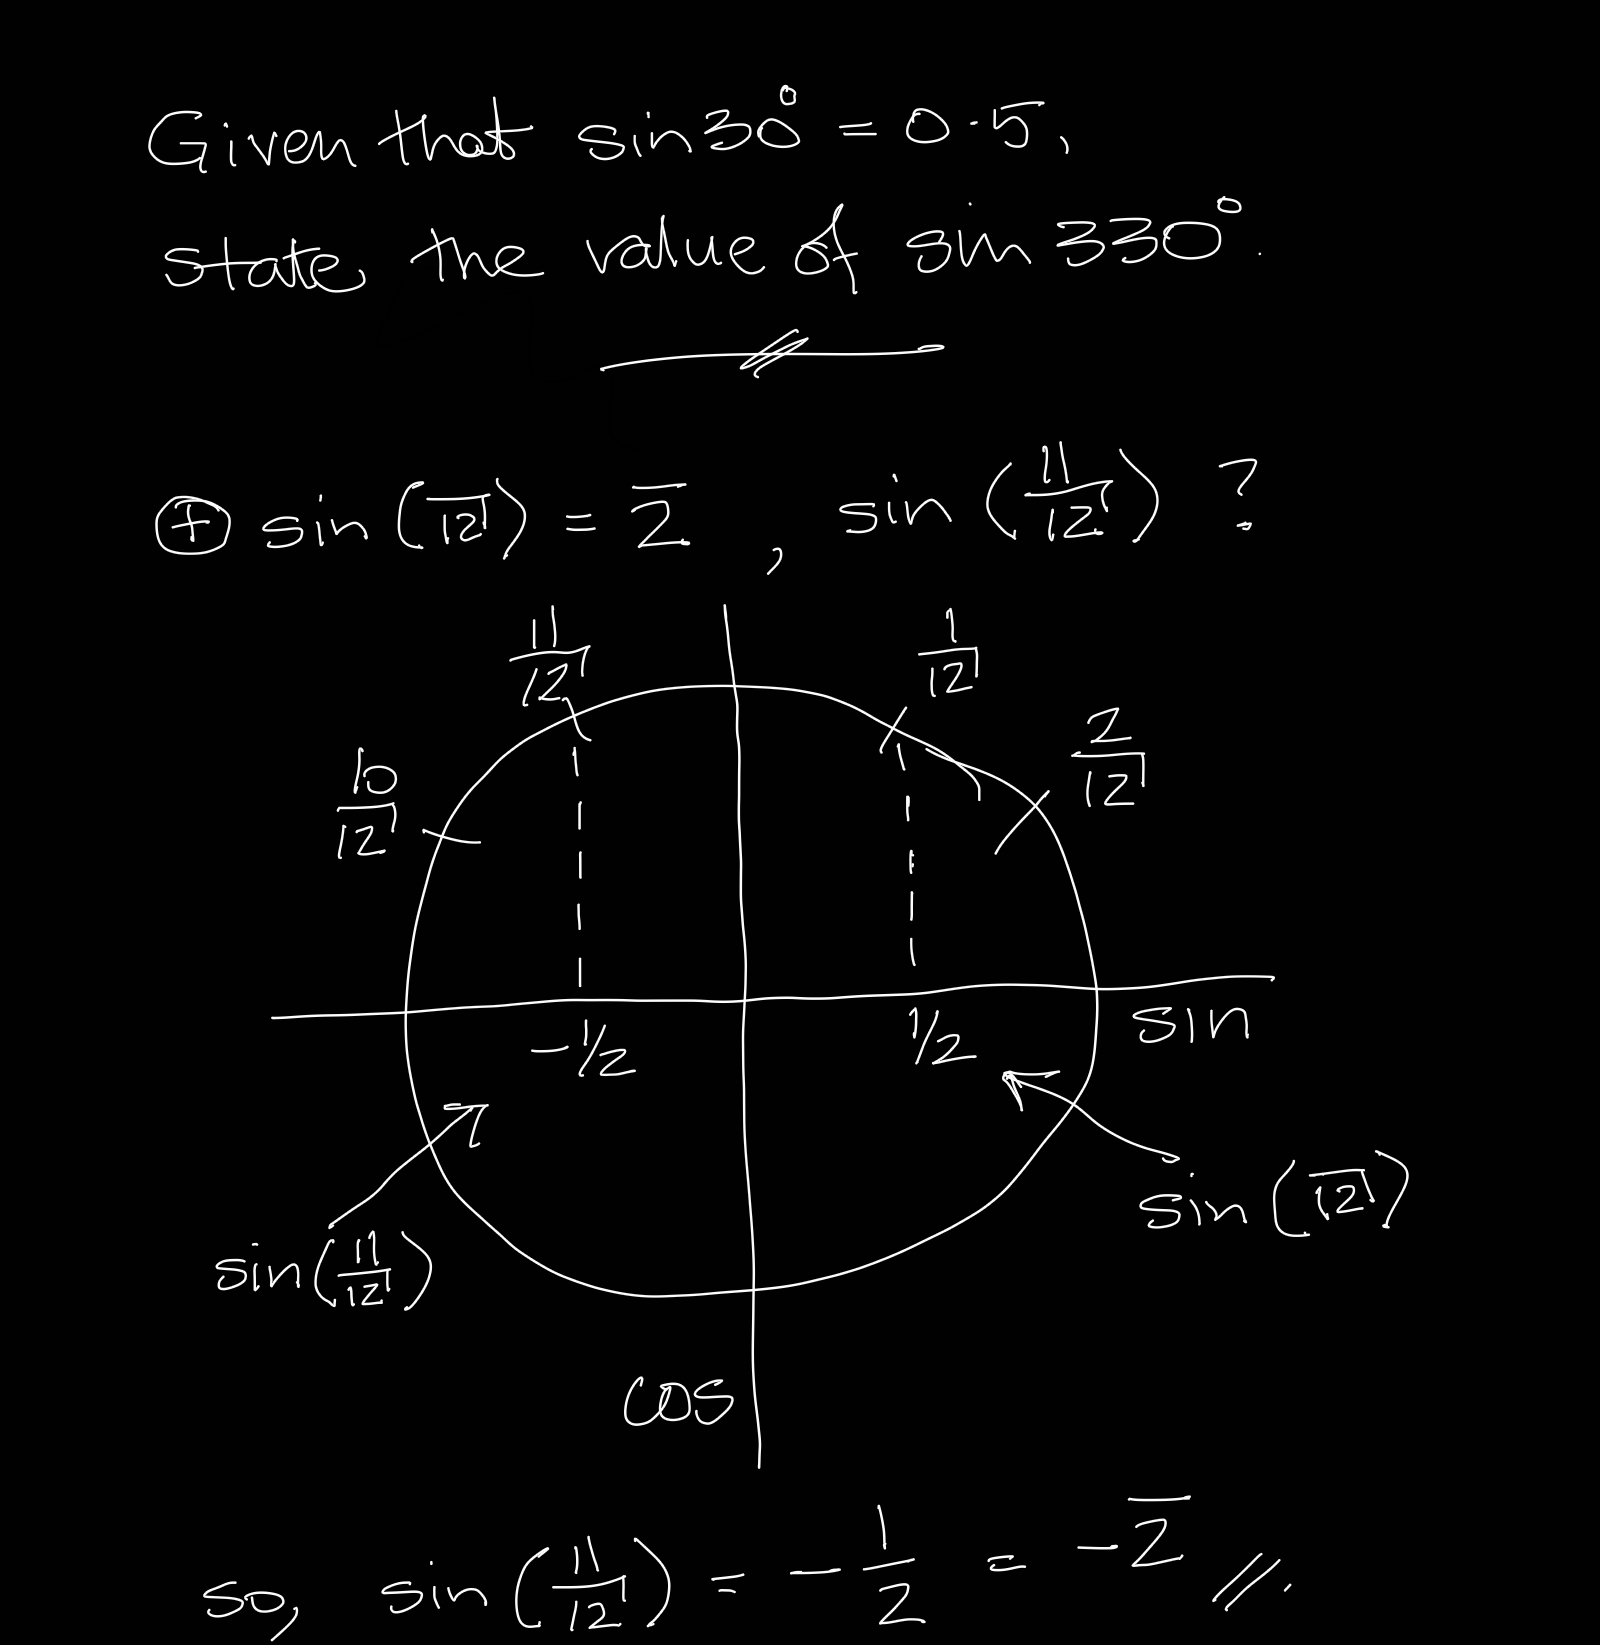 Given that sin 30° = 0.5,
state the value of sin 330°.
⊕ sin (‾12˥) = ‾2 , sin (11/12˥) ?
11/12˥
1/12˥
10/12˥
2/12˥
-1/2
1/2
sin
sin (‾12˥)
sin (11/12˥)
cos
so, sin (11/12˥) = - 1/2 = - ‾2 //.